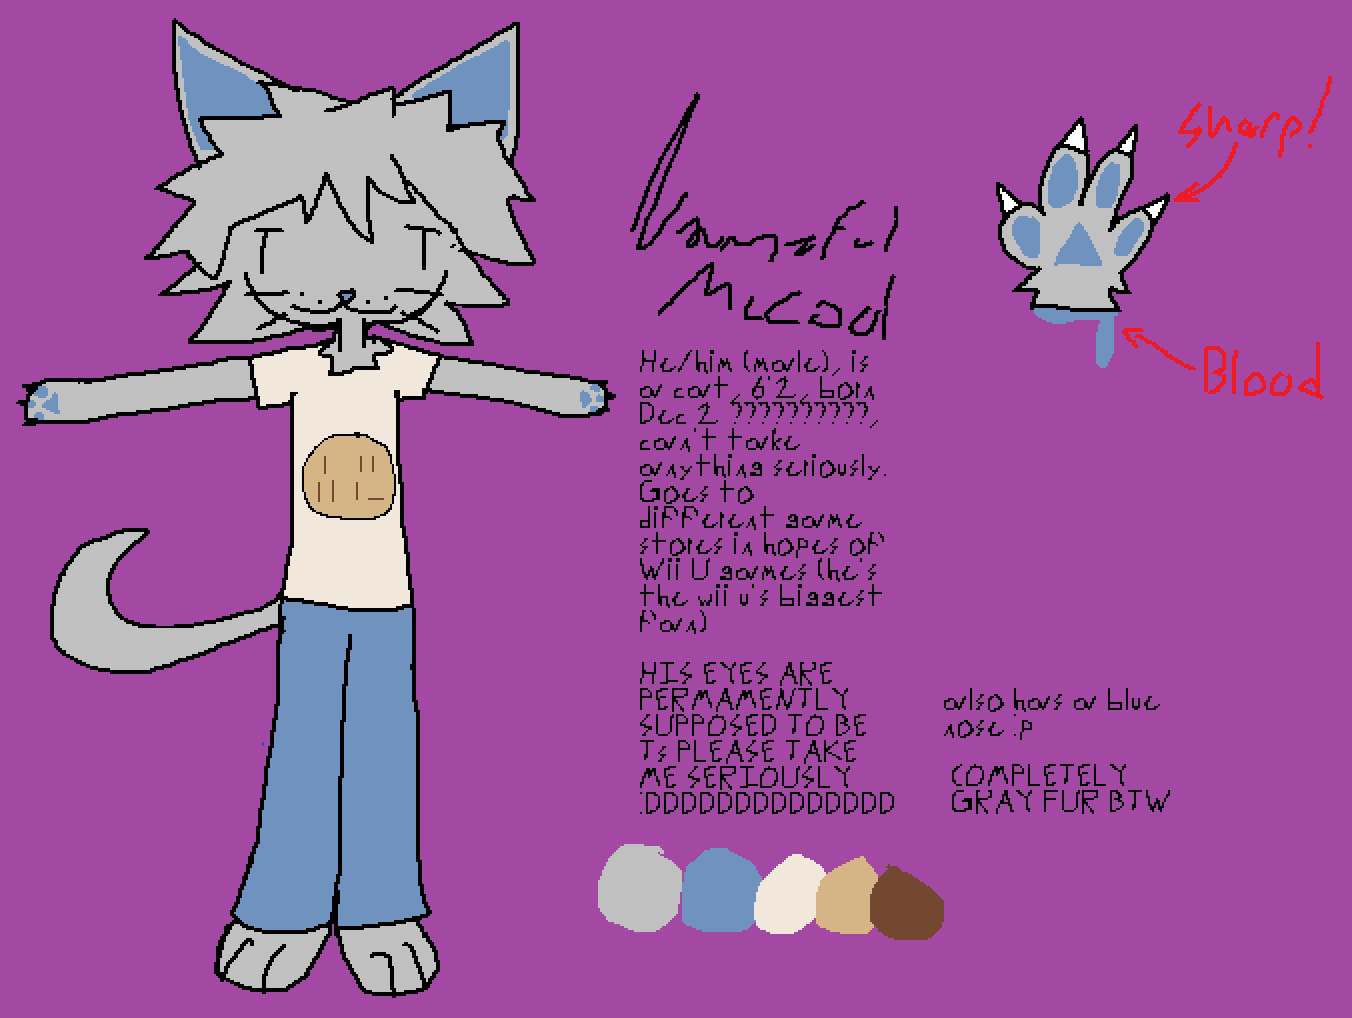 McCool
He/him (male), is
a cat, 6'2, born
Dec 2 ??????????,
can't take
anything seriously.
Goes to
different game
stores in hopes of
Wii U games (he's
the wii u's biggest
fan)
HIS EYES ARE
PERMAMENTLY
SUPPOSED TO BE
Ts PLEASE TAKE
ME SERIOUSLY
:DDDDDDDDDDDDDD
Sharp!
Blood
also has a blue
nose :P
COMPLETELY
GRAY FUR BTW